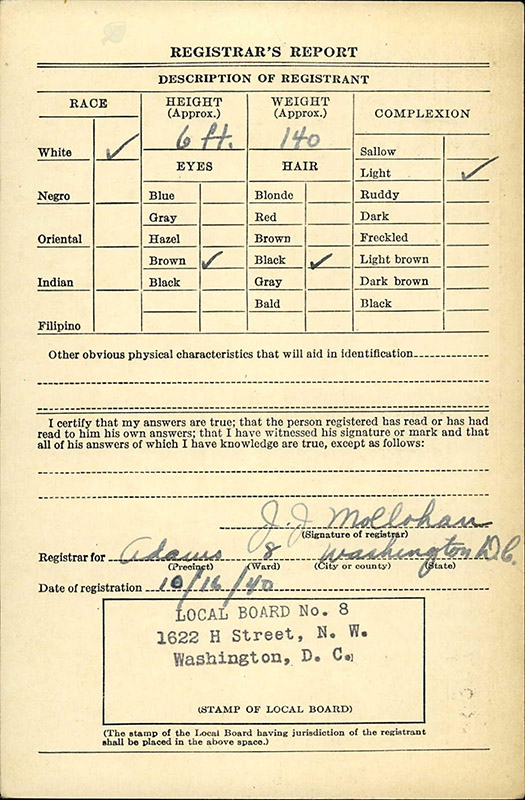 REGISTRAR'S REPORT
DESCRIPTION OF REGISTRANT
RACE
HEIGHT
(Approx.)
WEIGHT
(Approx.)
COMPLEXION
6 ft.
140
White ✓
EYES
HAIR
Sallow
Light ✓
Negro
Blue
Blonde
Ruddy
Gray
Red
Dark
Oriental
Hazel
Brown
Freckled
Brown ✓
Black ✓
Light brown
Indian
Black
Gray
Dark brown
Bald
Black
Filipino
Other obvious physical characteristics that will aid in identification
I certify that my answers are true; that the person registered has read or has had
read to him his own answers; that I have witnessed his signature or mark and that
all of his answers of which I have knowledge are true, except as follows:
J. J. Mollohan
(Signature of registrar)
Registrar for Adams 8 Washington D.C.
(Precinct) (Ward) (City or county) (State)
Date of registration 10/16/40
LOCAL BOARD No. 8
1622 H Street, N. W.
Washington, D. C.
(STAMP OF LOCAL BOARD)
(The stamp of the Local Board having jurisdiction of the registrant
shall be placed in the above space.)